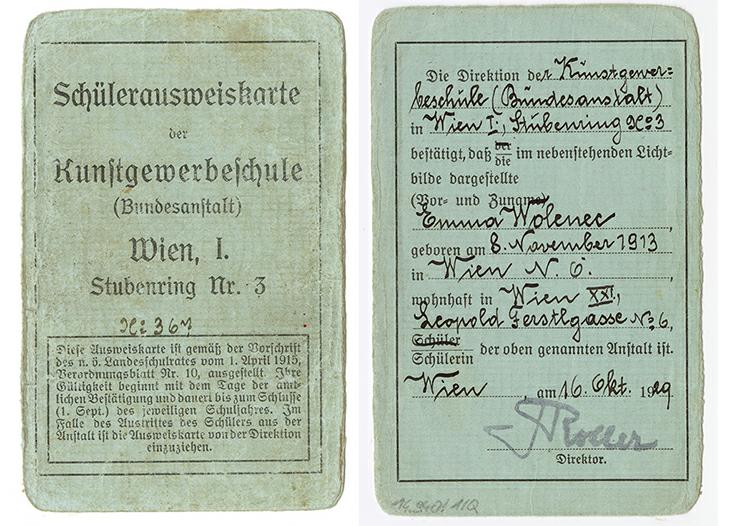 Schülerausweiskarte
der
Kunstgewerbeschule
(Bundesanstalt)
Wien, I.
Stubenring Nr. 3
No: 367
Diese Ausweiskarte ist gemäß der Vorschrift
des n. ö. Landesschulrates vom 1. April 1915,
Verordnungsblatt Nr. 10, ausgestellt. Ihre
Gültigkeit beginnt mit dem Tage der amt-
lichen Bestätigung und dauert bis zum Schlusse
(1. Sept.) des jeweiligen Schuljahres. Im
Falle des Austrittes des Schülers aus der
Anstalt ist die Ausweiskarte von der Direktion
einzuziehen.
Die Direktion der Kunstgewer=
beschule (Bundesanstalt)
in Wien I., Stubenring No 3
bestätigt, daß der
die im nebenstehenden Licht-
bilde dargestellte
(Vor- und Zuname)
Emma Wolenec
geboren am 8. November 1913
in Wien N. 6.
wohnhaft in Wien XXI.,
Leopold Ferstlgasse No: 6,
Schüler
Schülerin der oben genannten Anstalt ist.
Wien, am 16. Okt. 1929
Roller
Direktor.